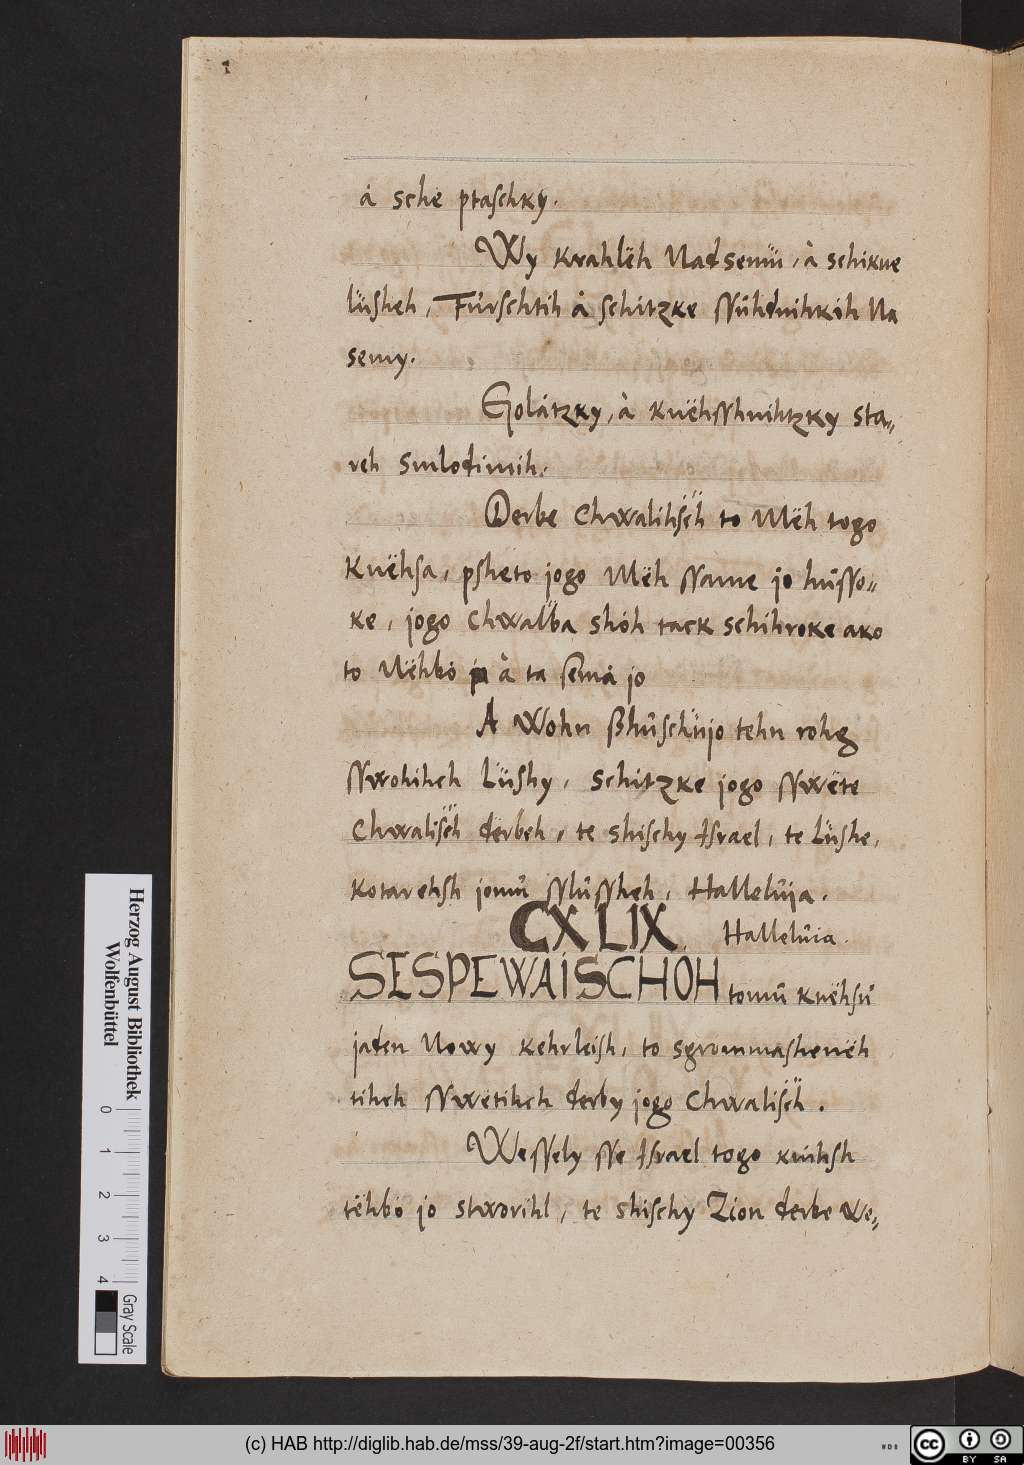 å sche ptaschky.
Wy krahlëh Nadsemü, à schikne
lüsheh, Fürschtih å schitzke ssühdnihkóh Na
semy.
Golátzky, à knëhsshnihtzky sta=
reh smlodimih.
Derbe Chwalihsëh to Mëh togo
knëhsa, psheto jogo Mëh ssame jo husso=
ke, jogo Chwalba shóh tack schihroke ako
to Nëhbó à ta semå jo
A Wohn ßhuschüjo tehn rohg
sswohihch Lüshy, schitzke jogo sswëte
Chwalisëh dërbeh, te shischy Israel, te Lüshe,
kotarehsh jomü sslüssheh, Halleluja.
CXLIX. Halleluia.
SESPEWAISCHOH tomü knëhsü
jaden Nowy kehrleish, to sgrommasheneh
tihch sswëtihch derby jogo Chwalisëh.
Wessely sse Israel togo knihsh
tëhbó jo stworihl, te shischy Zion derbe we=
Herzog August Bibliothek
Wolfenbüttel
0 1 2 3 4
Gray Scale
(c) HAB http://diglib.hab.de/mss/39-aug-2f/start.htm?image=00356
WDB
cc BY SA